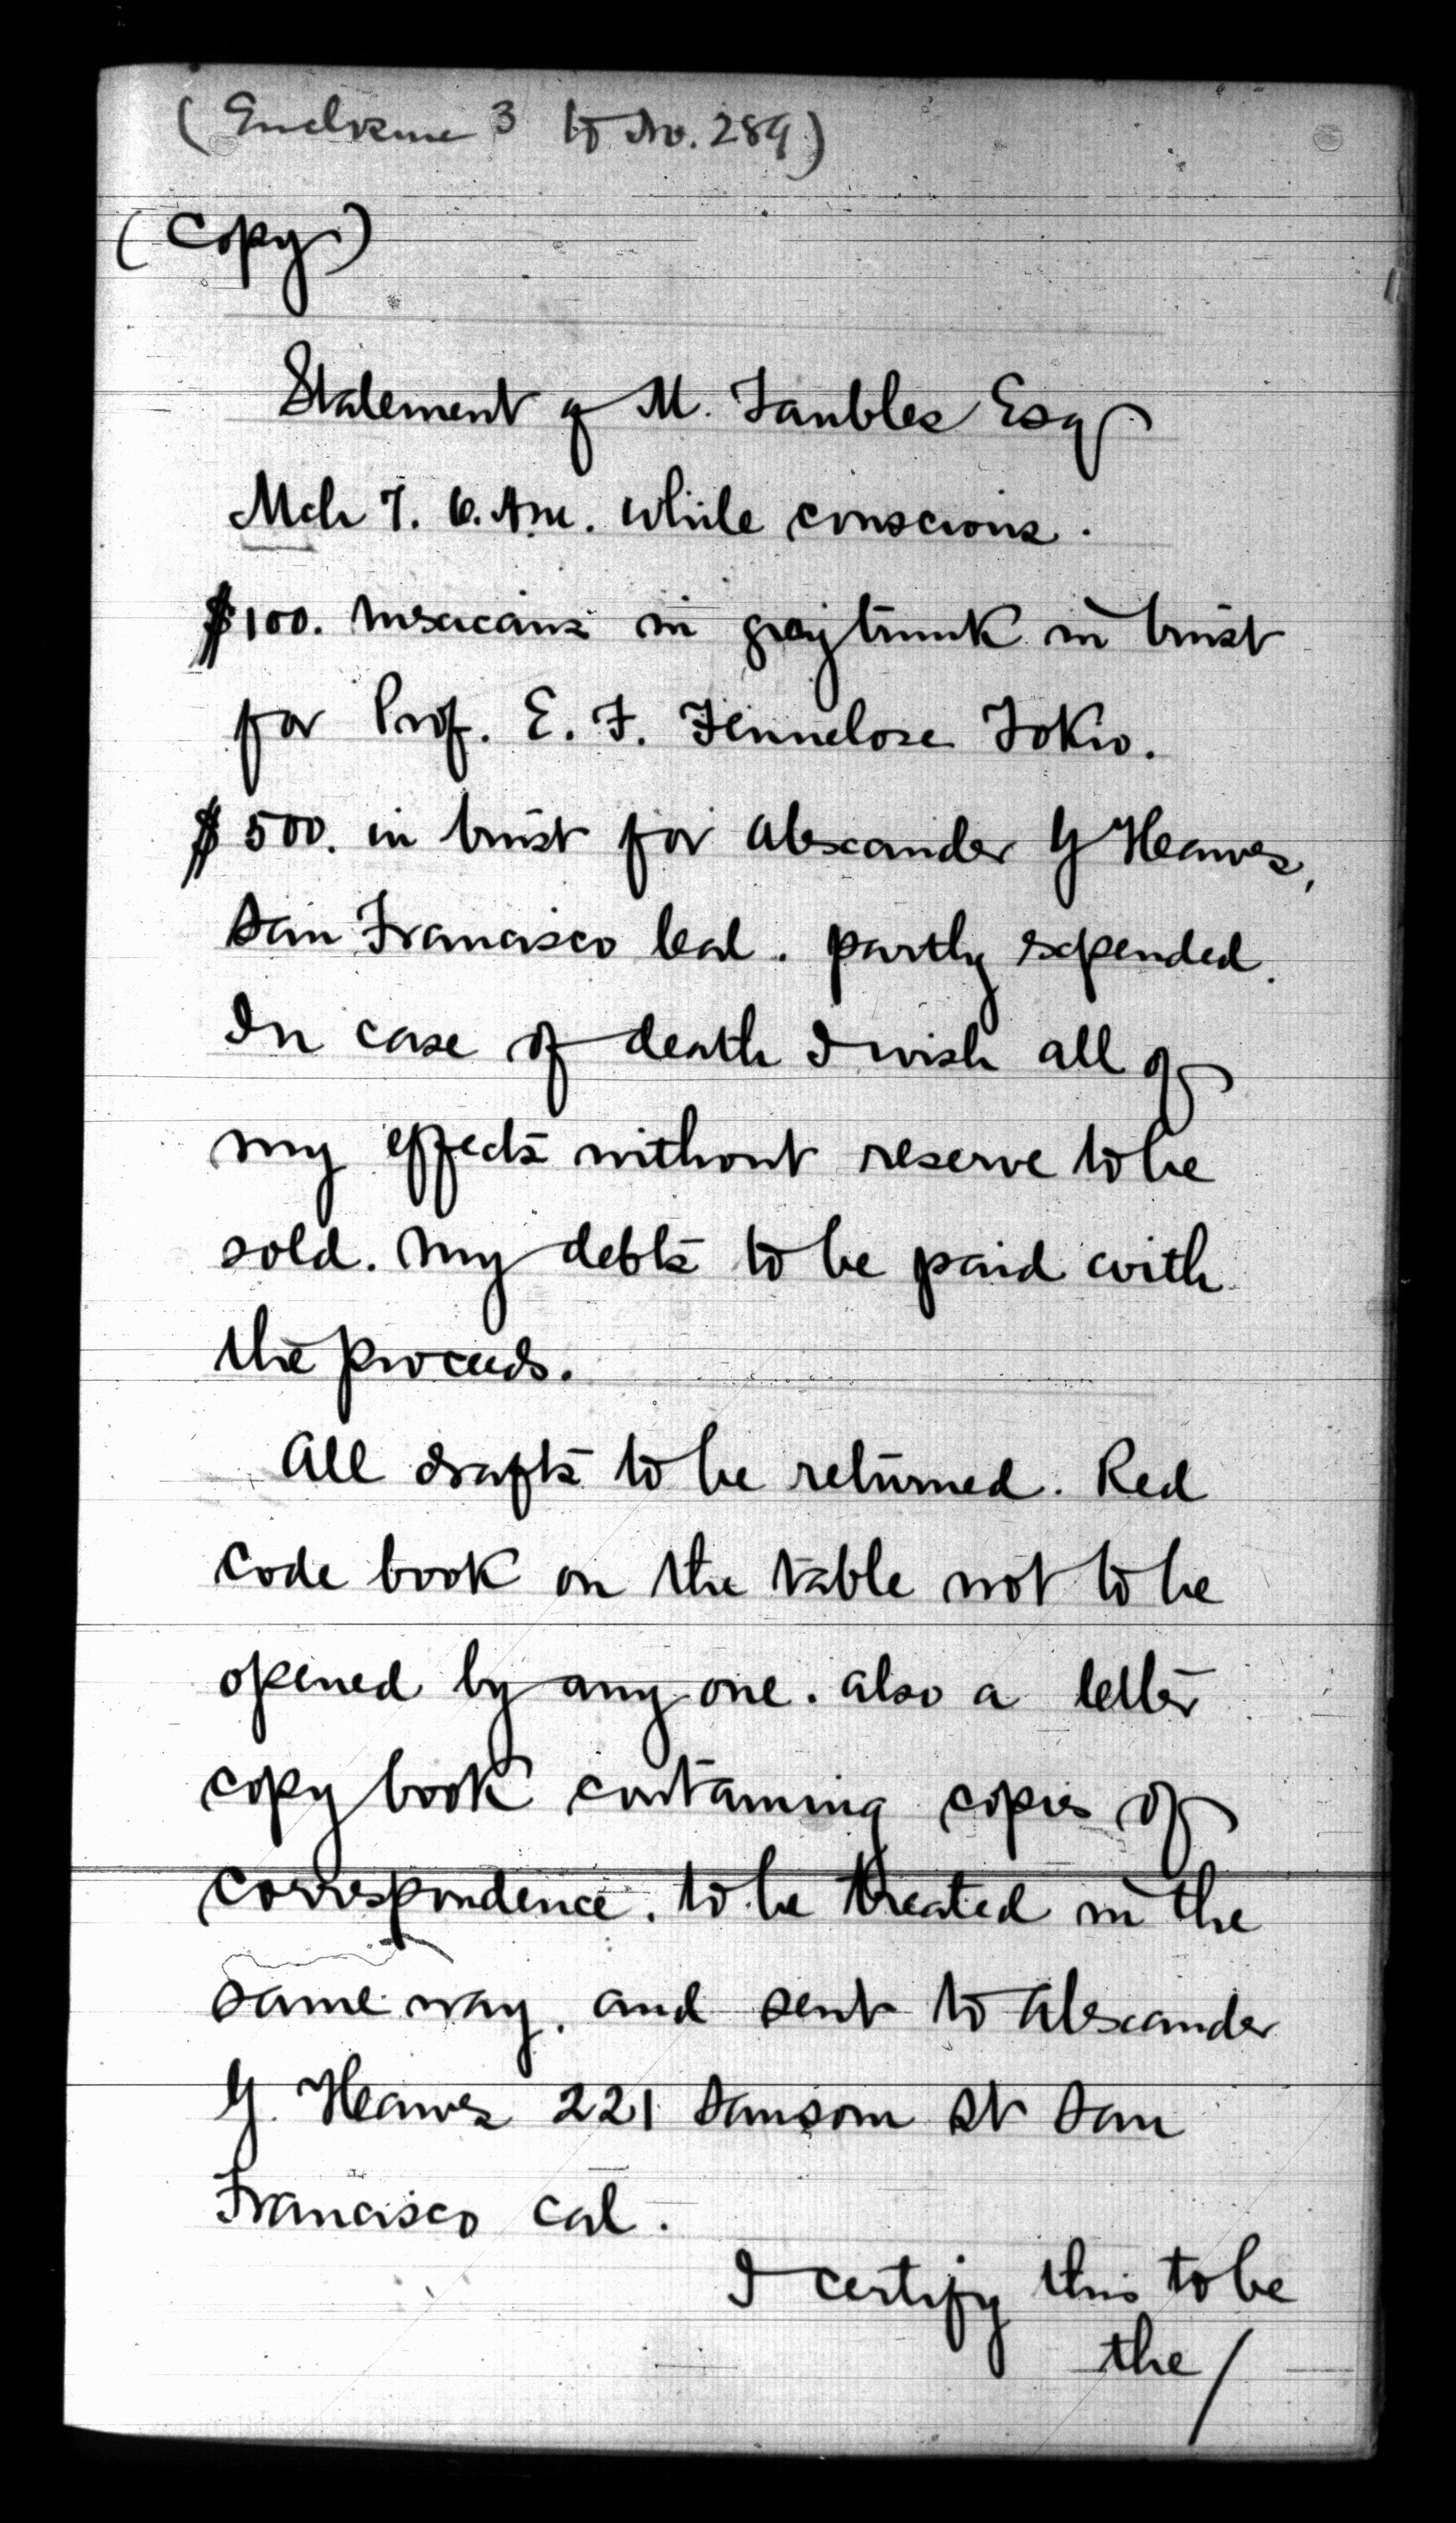 (Enclosure 3 to No. 289)
(Copy)
Statement of M. Taubles Esq
Mch 7. 6. Am. while conscious.
$100. mexicans in gray trunk in trust
for Prof. E. F. Fennelose Tokio.
$500. in trust for Alexander G Hawes,
San Francisco Cal. partly expended.
In case of death I wish all of
my effects without reserve to be
sold. My debts to be paid with
the proceeds.
All drafts to be returned. Red
code book on the table not to be
opened by any one. also a letter
copy book containing copies of
correspondence. to be treated in the
same way. and sent to Alexander
G. Hawes 221 Sansom St San
Francisco Cal.
I certify this to be
the /